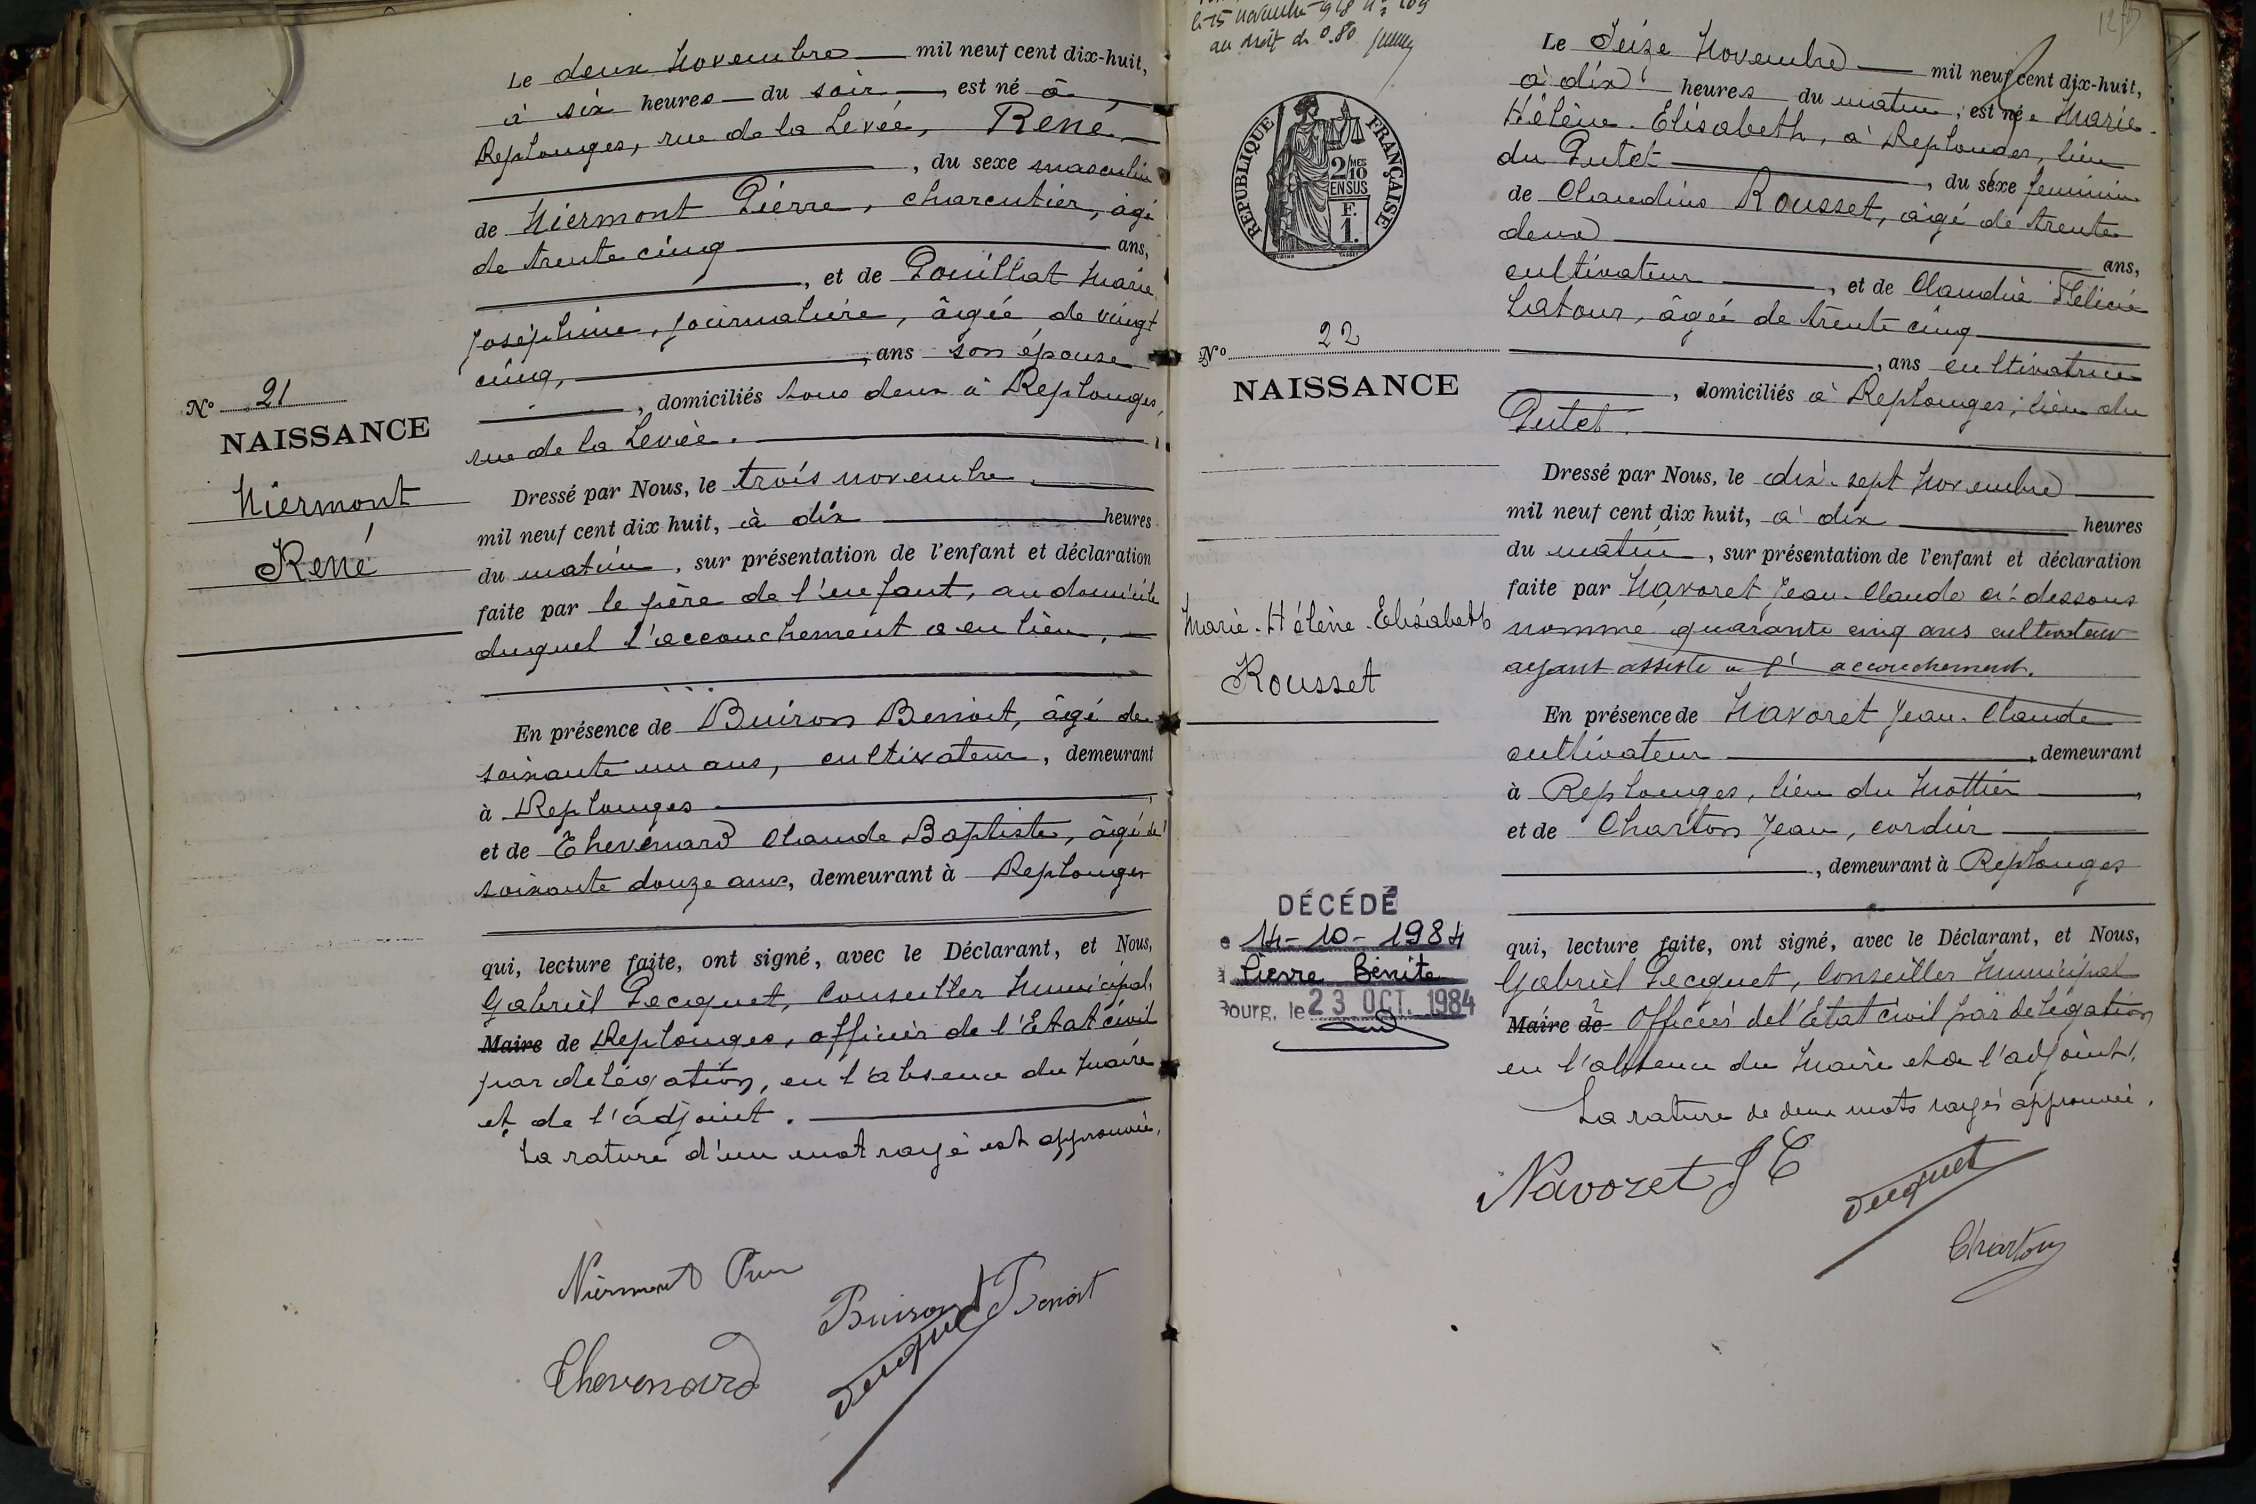 Le deux Novembre mil neuf cent dix-huit,
à six heures du soir, est né à
Replonges, rue de la Levée, René
, du sexe masculin
de Niermont Pierre, charcutier, âgé
de trente cinq ans,
, et de Pouillat Marie
Joséphine, journalière, âgée de vingt
cinq, ans son épouse
, domiciliés tous deux à Replonges,
rue de la Levée.
Dressé par Nous, le trois novembre
mil neuf cent dix huit, à dix heures
du matin, sur présentation de l'enfant et déclaration
faite par le père de l'enfant, au domicile
duquel l'accouchement a eu lieu,
En présence de Buiron Benoit, âgé de
soixante un ans, cultivateur, demeurant
à Replonges
et de Thevenard Claude Baptiste, âgé de
soixante douze ans, demeurant à Replonges
qui, lecture faite, ont signé, avec le Déclarant, et Nous,
Gabriel Pecquet, Conseiller Municipal
Maire de Replonges, officier de l'Etat civil
par délégation, en l'absence du Maire
et de l'adjoint.
La rature d'un mot rayé est approuvée.
Niermont
Buiron Benoit
Thevenard
Pecquet
No 21
NAISSANCE
Niermont
René
le 15 novembre 918 no 109
au droit de 0.80
REPUBLIQUE FRANÇAISE
2/10MES
EN SUS
F.
1.
No 22
NAISSANCE
Marie-Hélène-Elisabeth
Rousset
DÉCÉDÉ
14-10-1984
Pierre Bénite
Bourg, le 23 OCT. 1984
Le Seize Novembre mil neuf cent dix-huit,
à dix heures du matin, est née Marie-
Hélène-Elisabeth, à Replonges, lieu
du Putet, du sexe féminin
de Claudius Rousset, âgé de trente
deux ans,
cultivateur, et de Claudia Félicie
Latour, âgée de trente cinq
, ans cultivatrice
, domiciliés à Replonges, lieu du
Putet.
Dressé par Nous, le dix-sept Novembre
mil neuf cent dix huit, à dix heures
du matin, sur présentation de l'enfant et déclaration
faite par Navoret Jean-Claude ci-dessous
nommé, quarante cinq ans cultivateur
ayant assisté à l'accouchement.
En présence de Navoret Jean-Claude
cultivateur, demeurant
à Replonges, lieu du Mottier,
et de Charton Jean, cordier
, demeurant à Replonges
qui, lecture faite, ont signé, avec le Déclarant, et Nous,
Gabriel Pecquet, Conseiller Municipal
Maire de Officier de l'Etat civil par délégation
en l'absence du Maire et de l'adjoint.
La rature de deux mots rayés approuvée.
Navoret J C
Pecquet
Charton